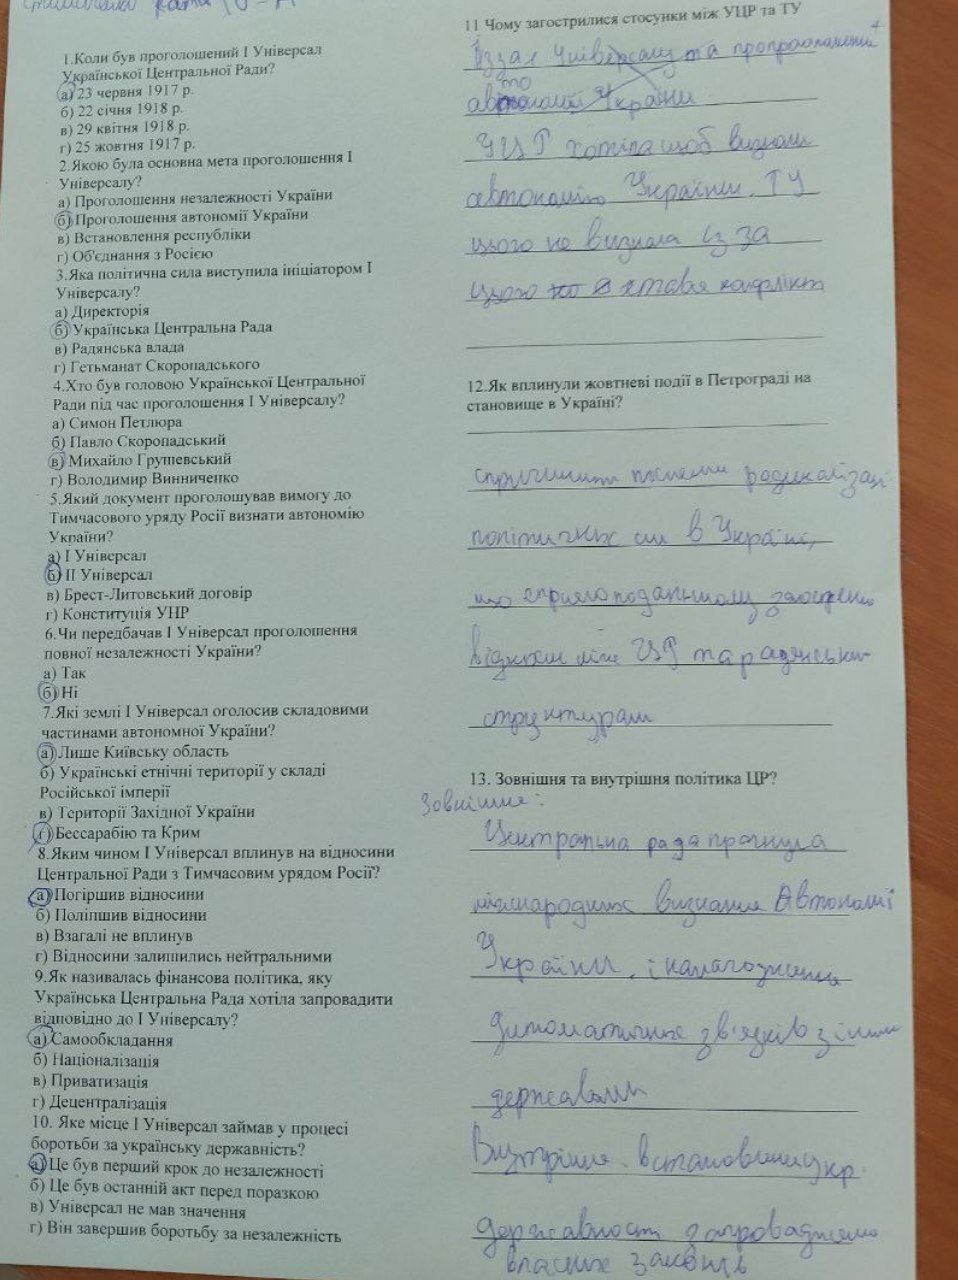 1.Коли був проголошений І Універсал
Української Центральної Ради?
а) 23 червня 1917 р.
б) 22 січня 1918 р.
в) 29 квітня 1918 р.
г) 25 жовтня 1917 р.
2.Якою була основна мета проголошення І
Універсалу?
а) Проголошення незалежності України
б) Проголошення автономії України
в) Встановлення республіки
г) Об'єднання з Росією
3.Яка політична сила виступила ініціатором І
Універсалу?
а) Директорія
б) Українська Центральна Рада
в) Радянська влада
г) Гетьманат Скоропадського
4.Хто був головою Української Центральної
Ради під час проголошення І Універсалу?
а) Симон Петлюра
б) Павло Скоропадський
в) Михайло Грушевський
г) Володимир Винниченко
5.Який документ проголошував вимогу до
Тимчасового уряду Росії визнати автономію
України?
а) І Універсал
б) ІІ Універсал
в) Брест-Литовський договір
г) Конституція УНР
6.Чи передбачав І Універсал проголошення
повної незалежності України?
а) Так
б) Ні
7.Які землі І Універсал оголосив складовими
частинами автономної України?
а) Лише Київську область
б) Українські етнічні території у складі
Російської імперії
в) Території Західної України
г) Бессарабію та Крим
8.Яким чином І Універсал вплинув на відносини
Центральної Ради з Тимчасовим урядом Росії?
а) Погіршив відносини
б) Поліпшив відносини
в) Взагалі не вплинув
г) Відносини залишились нейтральними
9.Як називалась фінансова політика, яку
Українська Центральна Рада хотіла запровадити
відповідно до І Універсалу?
а) Самообкладання
б) Націоналізація
в) Приватизація
г) Децентралізація
10. Яке місце І Універсал займав у процесі
боротьби за українську державність?
а) Це був перший крок до незалежності
б) Це був останній акт перед поразкою
в) Універсал не мав значення
г) Він завершив боротьбу за незалежність
11 Чому загострилися стосунки між УЦР та ТУ
Універсалу та
України
УЦР хотіла щоб визнали
автономію України. ТУ
цього не визнала із за
цього стався конфлікт
12.Як вплинули жовтневі події в Петрограді на
становище в Україні?
спричинили радикалізації
політичних сил в Україні,
що сприяло подальшому
відносин між ЦР та радянськими
структурами
13. Зовнішня та внутрішня політика ЦР?
Зовнішня:
Центральна рада прагнула
міжнародних визнання Автономії
України. і налагодження
дипоматичних зв'язків з іншими
державами
Внутрішня. встановлення укр.
державності запровадження
власних законів